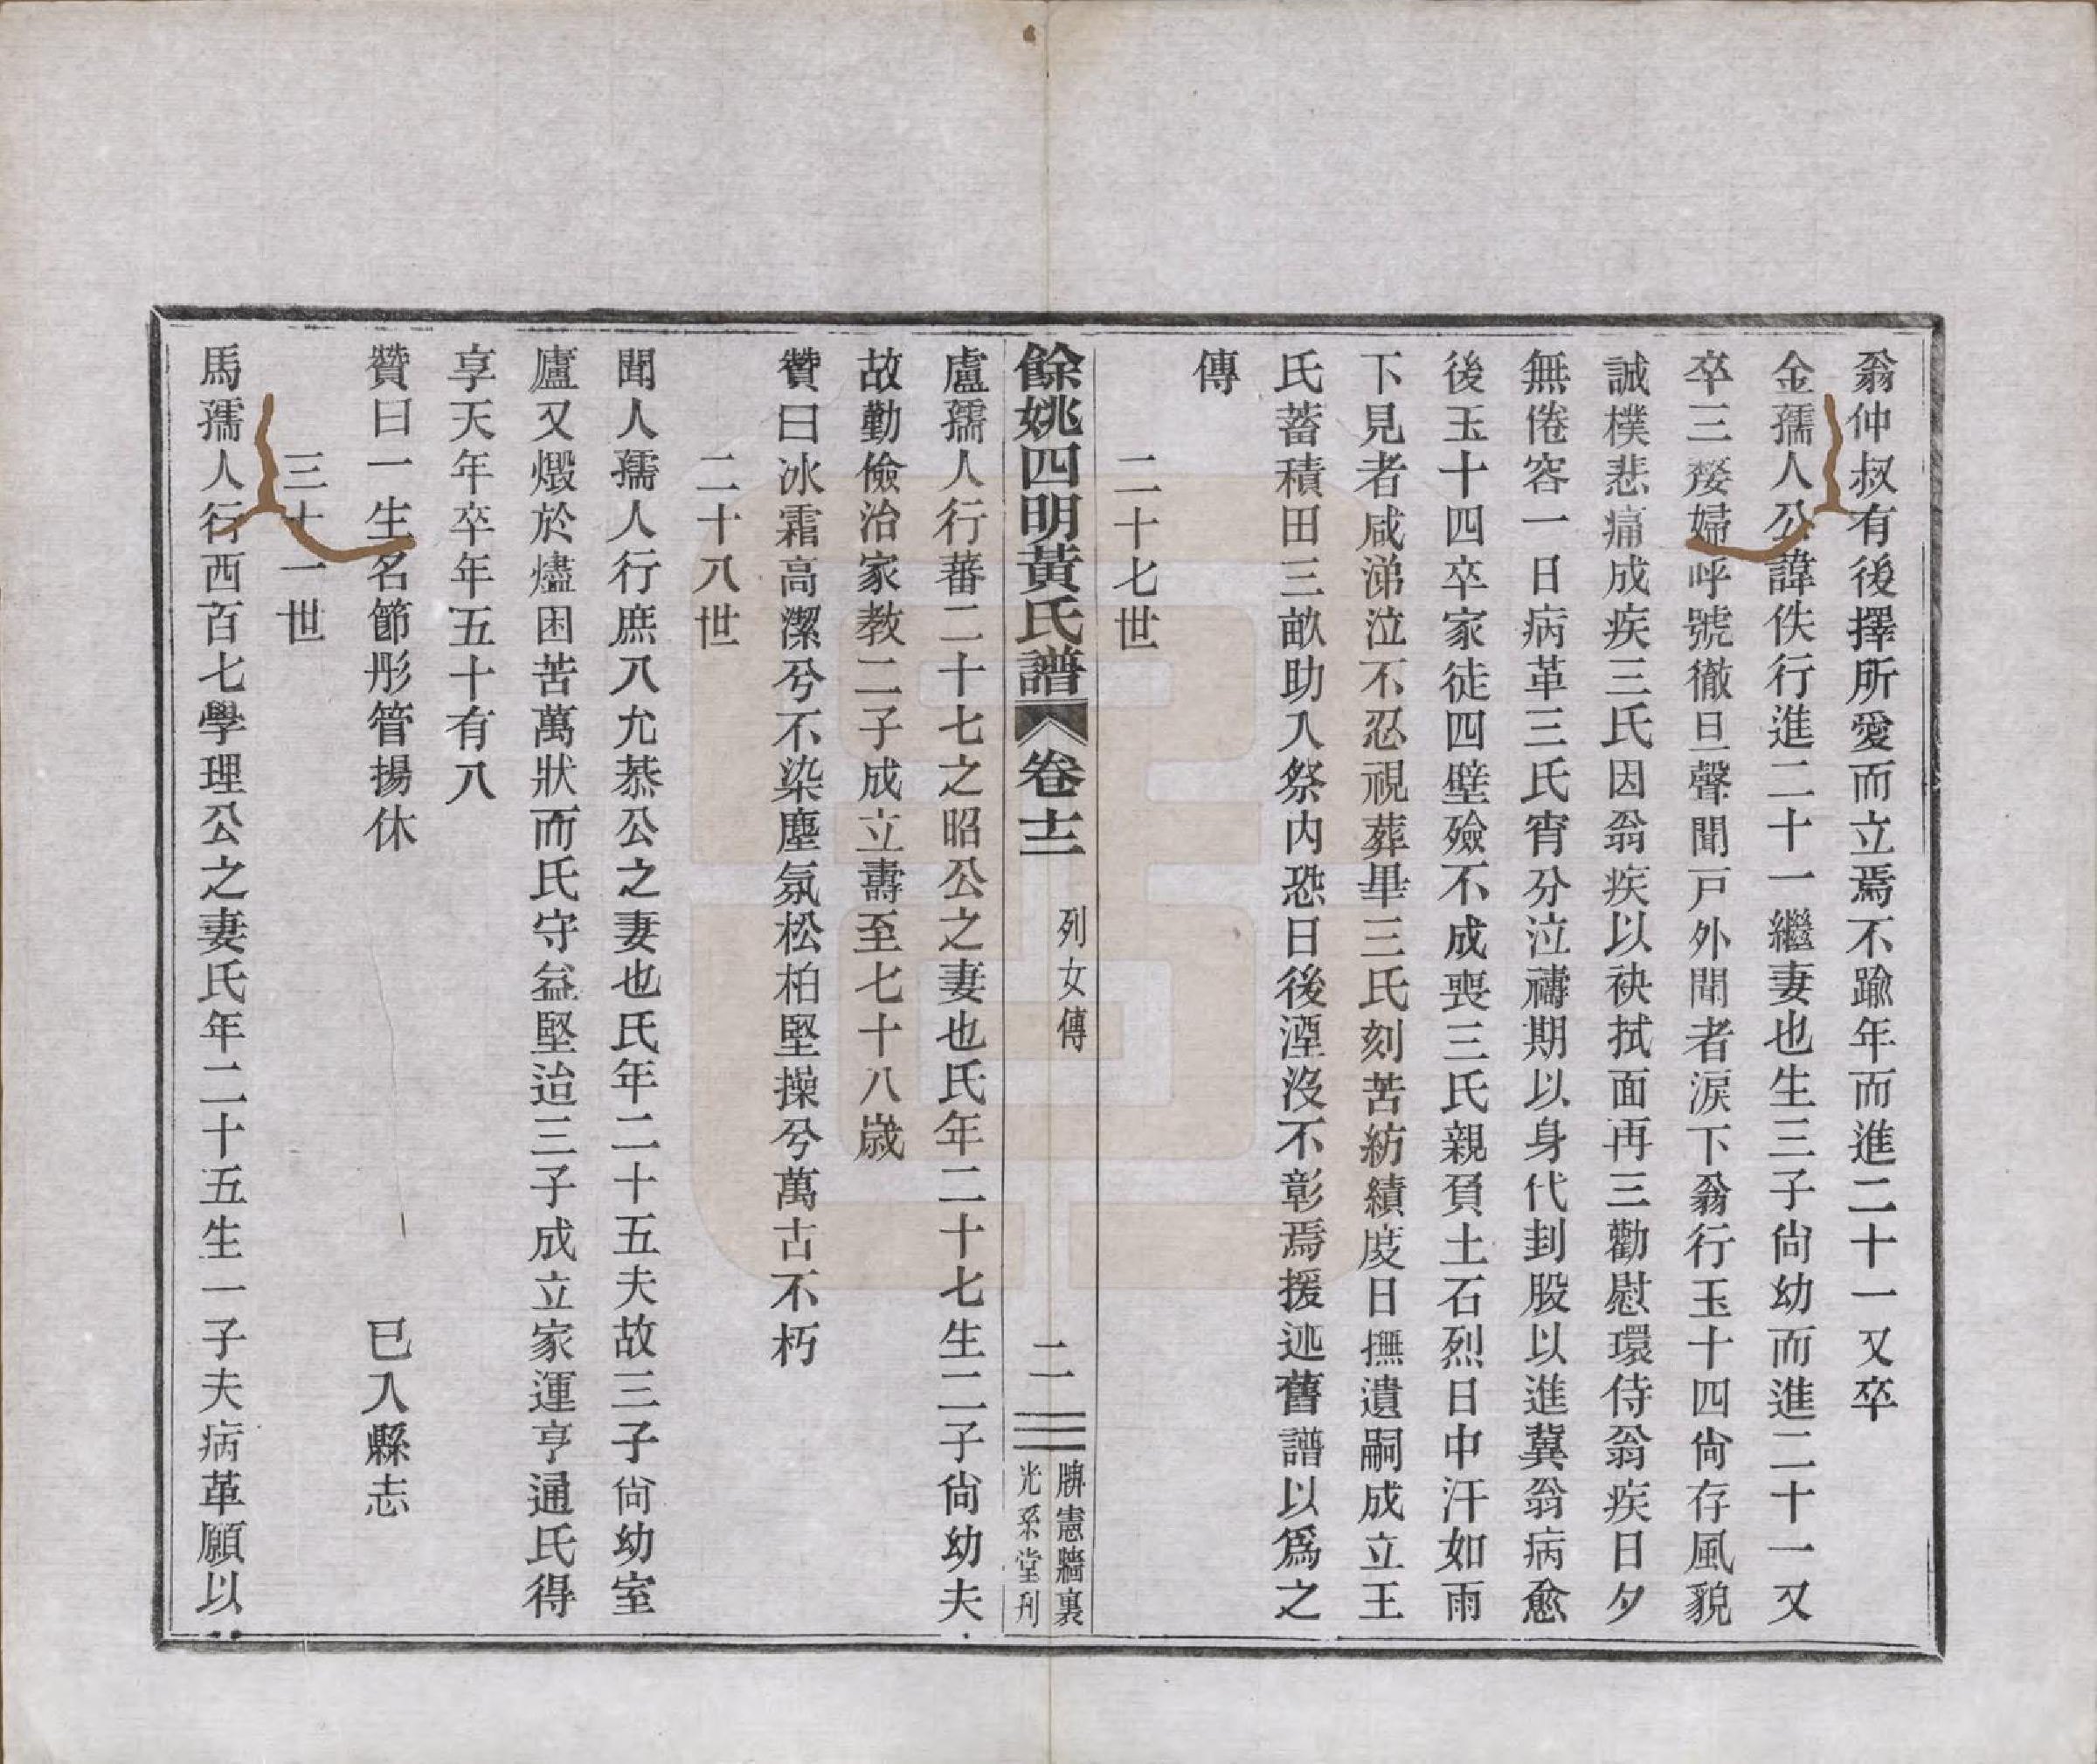 翁仲叔有後擇所愛而立焉不踰年而進二十一又卒
金孺人公諱佚行進二十一繼妻也生三子尙幼而進二十一又
卒三嫠婦呼號徹旦聲聞戸外聞者淚下翁行玉十四尙存風貌
誠樸悲痛成疾三氏因翁疾以袂拭面再三勸慰環侍翁疾日夕
無倦容一日病革三氏宵分泣禱期以身代刲股以進冀翁病愈
後玉十四卒家徒四壁殮不成喪三氏親負土石烈日中汗如雨
下見者咸涕泣不忍視葬畢三氏刻苦紡績度日撫遺嗣成立王
氏蓄積田三畝助入祭内恐日後湮沒不彰焉援述舊譜以爲之
傳
二十七世
餘姚四明黃氏譜 卷十二 列女傳 二 竹橋憲牆裏 光系堂刊
盧孺人行蕃二十七之昭公之妻也氏年二十七生二子尙幼夫
故勤儉治家教二子成立壽至七十八歲
贊曰冰霜高潔兮不染塵氛松柏堅操兮萬古不朽
二十八世
聞人孺人行庶八允恭公之妻也氏年二十五夫故三子尙幼室
廬又燬於燼困苦萬狀而氏守益堅迨三子成立家運亨通氏得
享天年卒年五十有八
贊曰一生名節彤管揚休 已入縣志
三十一世
馬孺人行西百七學理公之妻氏年二十五生一子夫病革願以